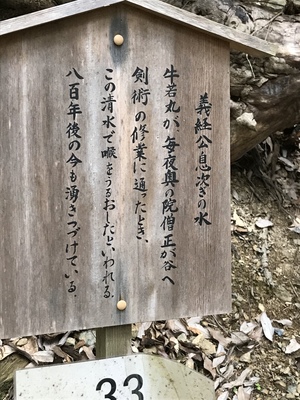 義経公息次ぎの水
牛若丸が、毎夜奥の院僧正が谷へ
剣術の修業に通ったとき、
この清水で喉をうるおしたといわれる。
八百年後の今も湧きつづけている。
33